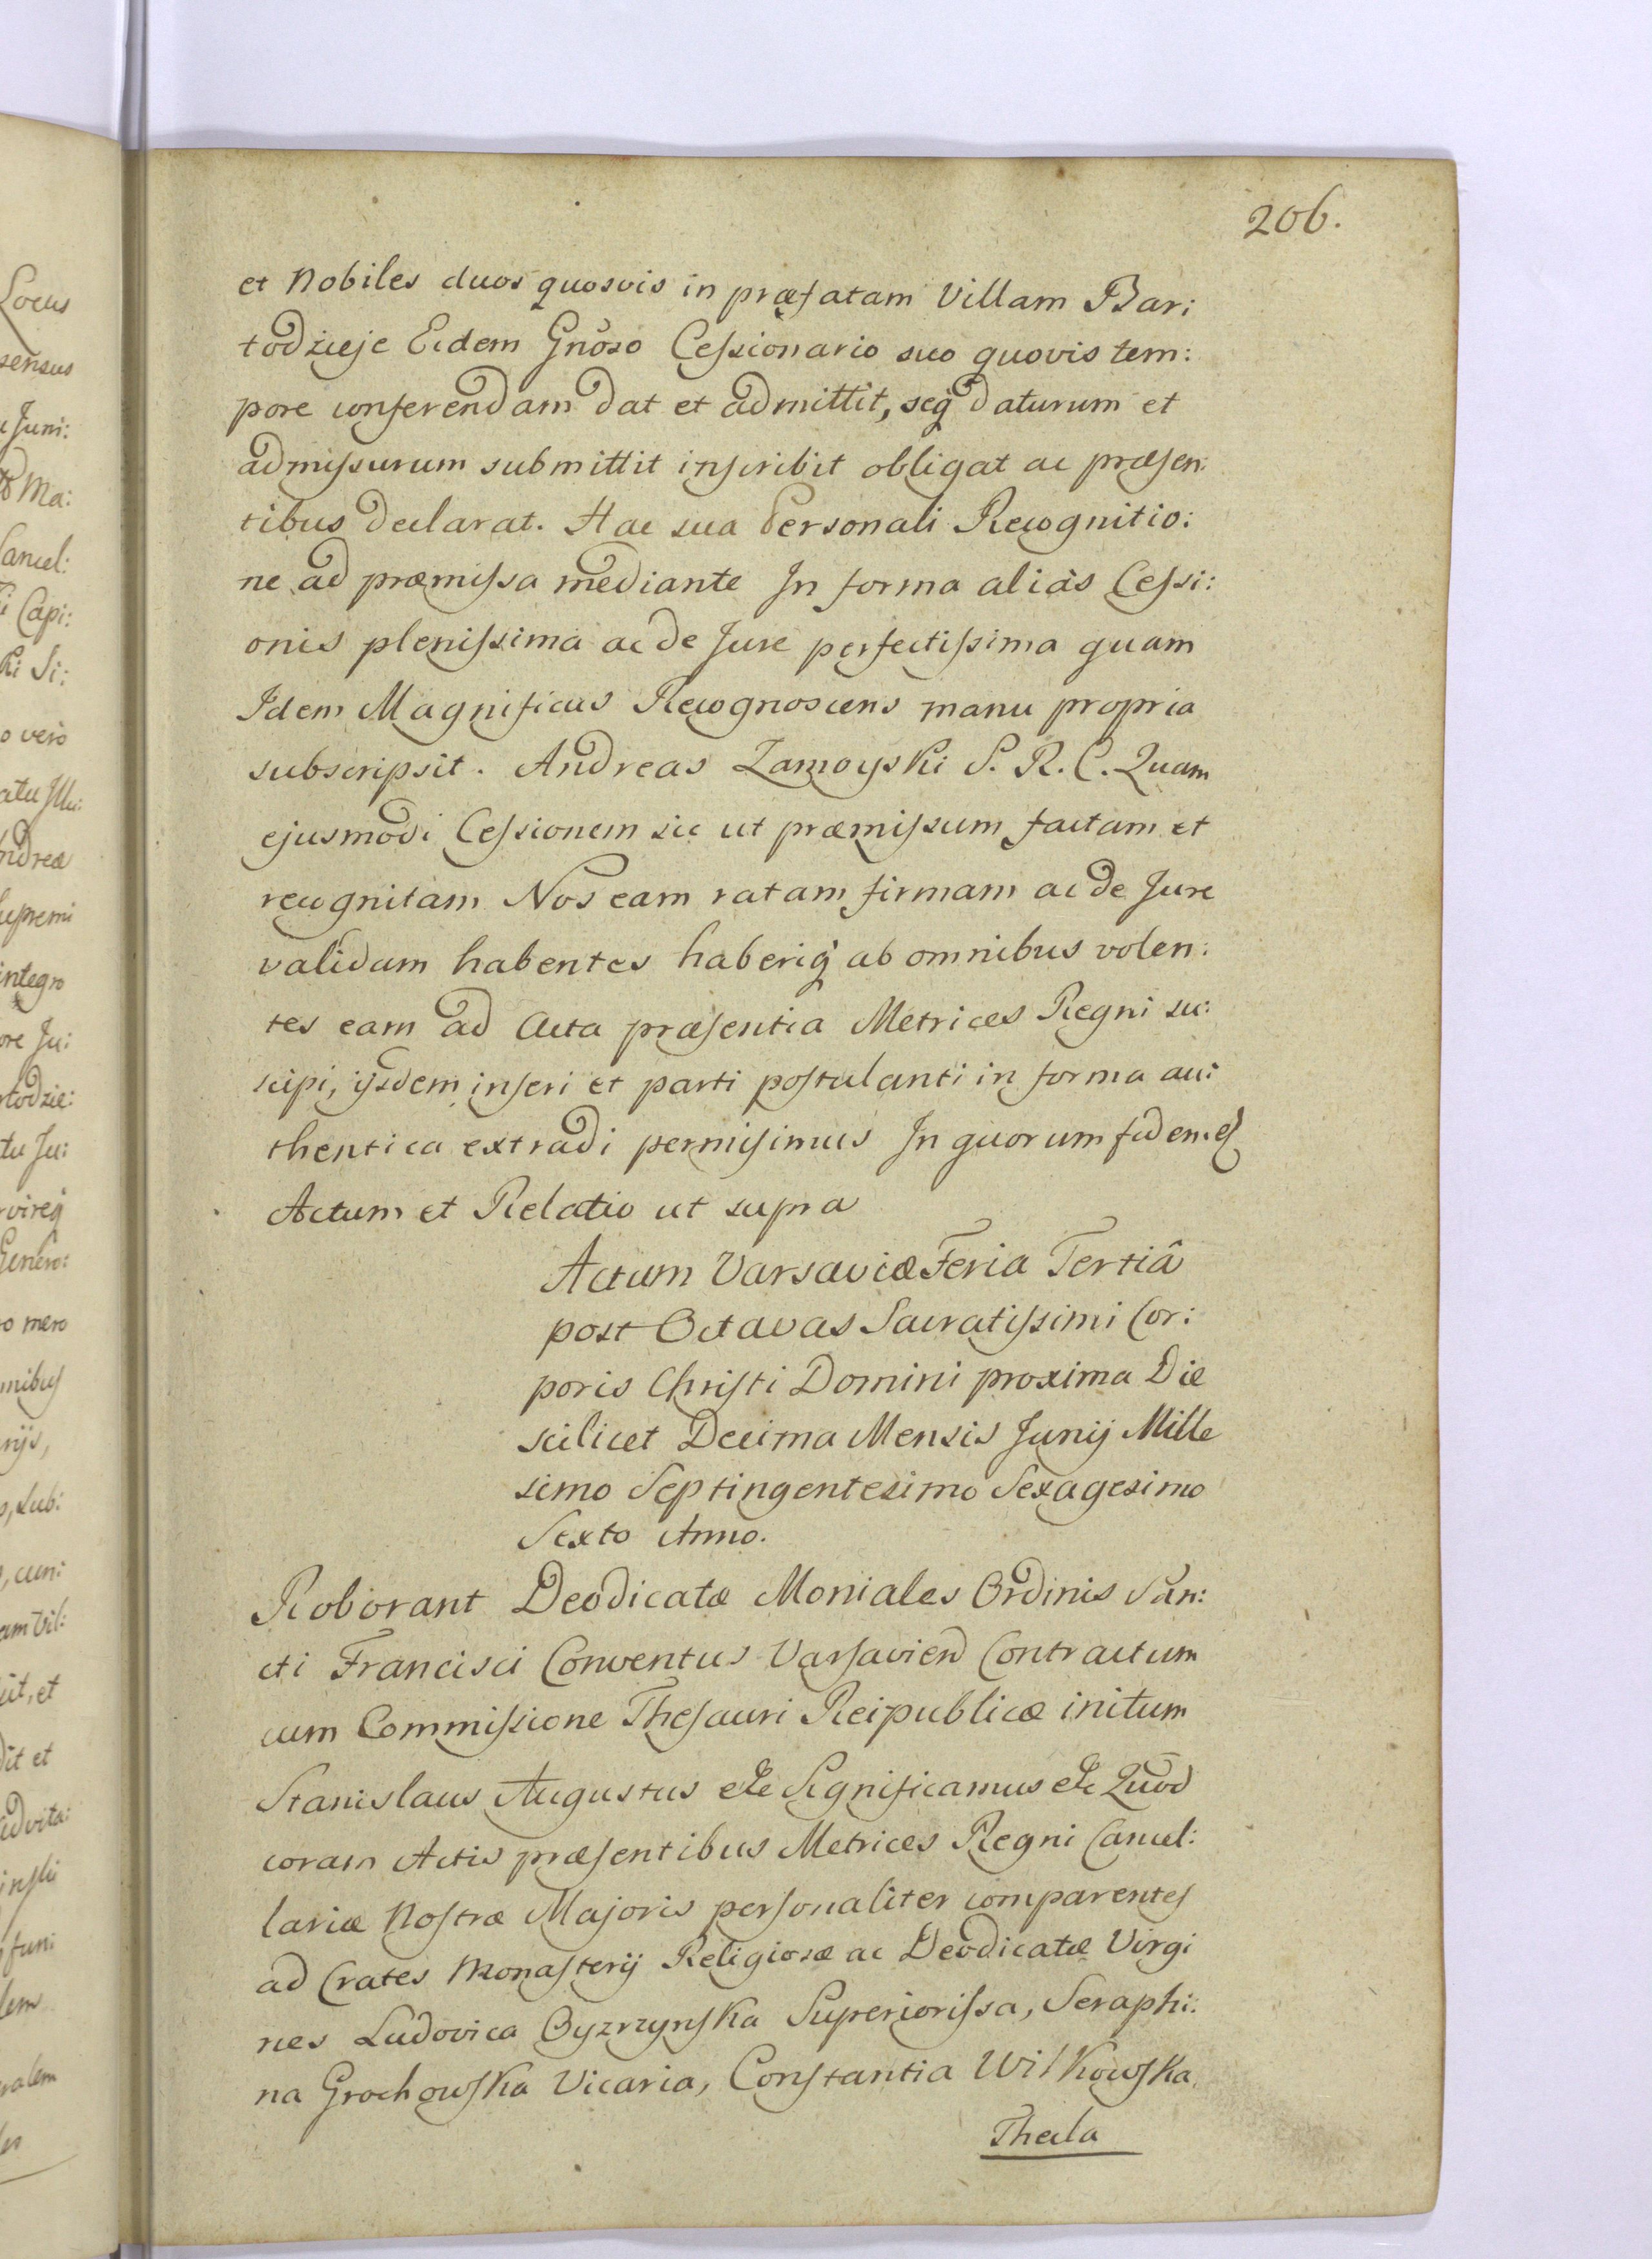 206.
et Nobiles duos quosvis in præfatam Villam Bar:
todzieje Eidem Gnoso Cessionario suo quovis tem:
pore conferendam dat et admittit, seq daturum et
admissurum submittit inscribit obligat ac præsen:
tibus declarat. Hac sua Personali Recognitio:
ne ad præmissa mediante In forma aliàs Cessi:
onis plenissima ac de Jure perfectissima quam
Idem Magnificus Recognoscens manu propria
subscripsit. Andreas Zamoyski S. R. C. Quam
ejusmodi Cessionem sic ut præmissum factam et
recognitam Nos eam ratam firmam ac de Jure
validam habentes haberiq ab omnibus volen:
tes eam ad Acta præsentia Metrices Regni su:
scipi, ijsdem inseri et parti postulanti in forma au:
thentica extradi permisimus In quorum fidem.
Actum et Relatio ut supra
Actum Varsaviæ Feria Tertiâ
post Octavas Sacratissimi Cor:
poris Christi Domini proxima Die
scilicet Decima Mensis Junij Mille
simo Septingentesimo Sexagesimo
Sexto Anno.
Roborant Deodicatæ Moniales Ordinis San:
cti Francisci Conventus Varsavien Contractum
cum Commissione Thesauri Reipublicæ initum
Stanislaus Augustus etc Significamus etc Quod
coram Actis præsentibus Metrices Regni Cancel:
lariæ Nostræ Majoris personaliter comparentes
ad Crates Monasterij Religiosæ ac Deodicatæ Virgi
nes Ludovica Gyzrzynska Superiorissa, Seraphi:
na Grochowska Vicaria, Constantia Wilkowska
Thecla
Locus
Juni:
Ma:
Cancel:
Capi:
ki Si:
o verò
upremi
integro
ore Ju:
todzie:
tu Ju:
o mero